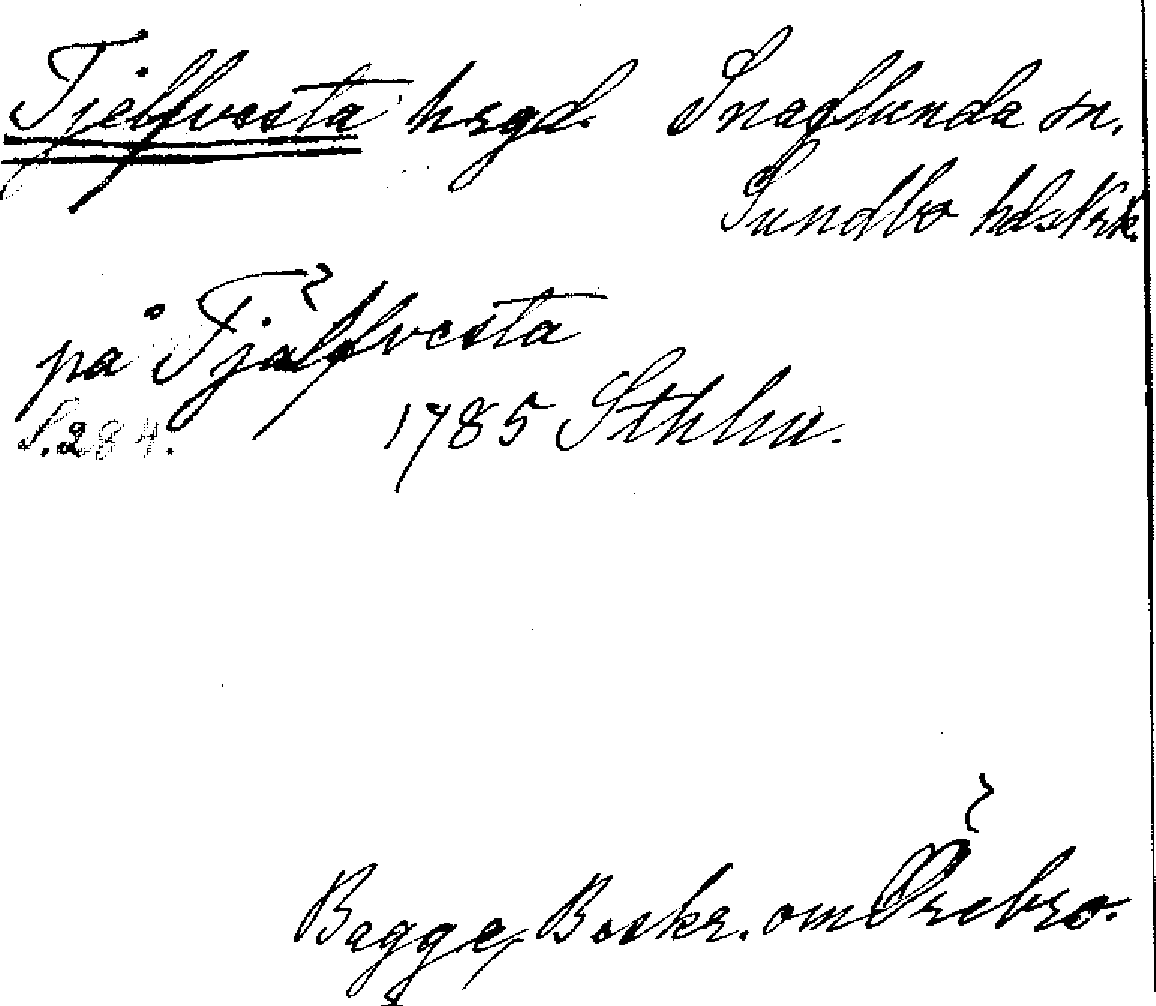 Tjelfvesta hrgd. Snaflunda sn.
Sundbo hdskrk.
på Tjälfvesta
S. 284. 1785 Sthlm.
Bagge, Beskr. om Örebro.